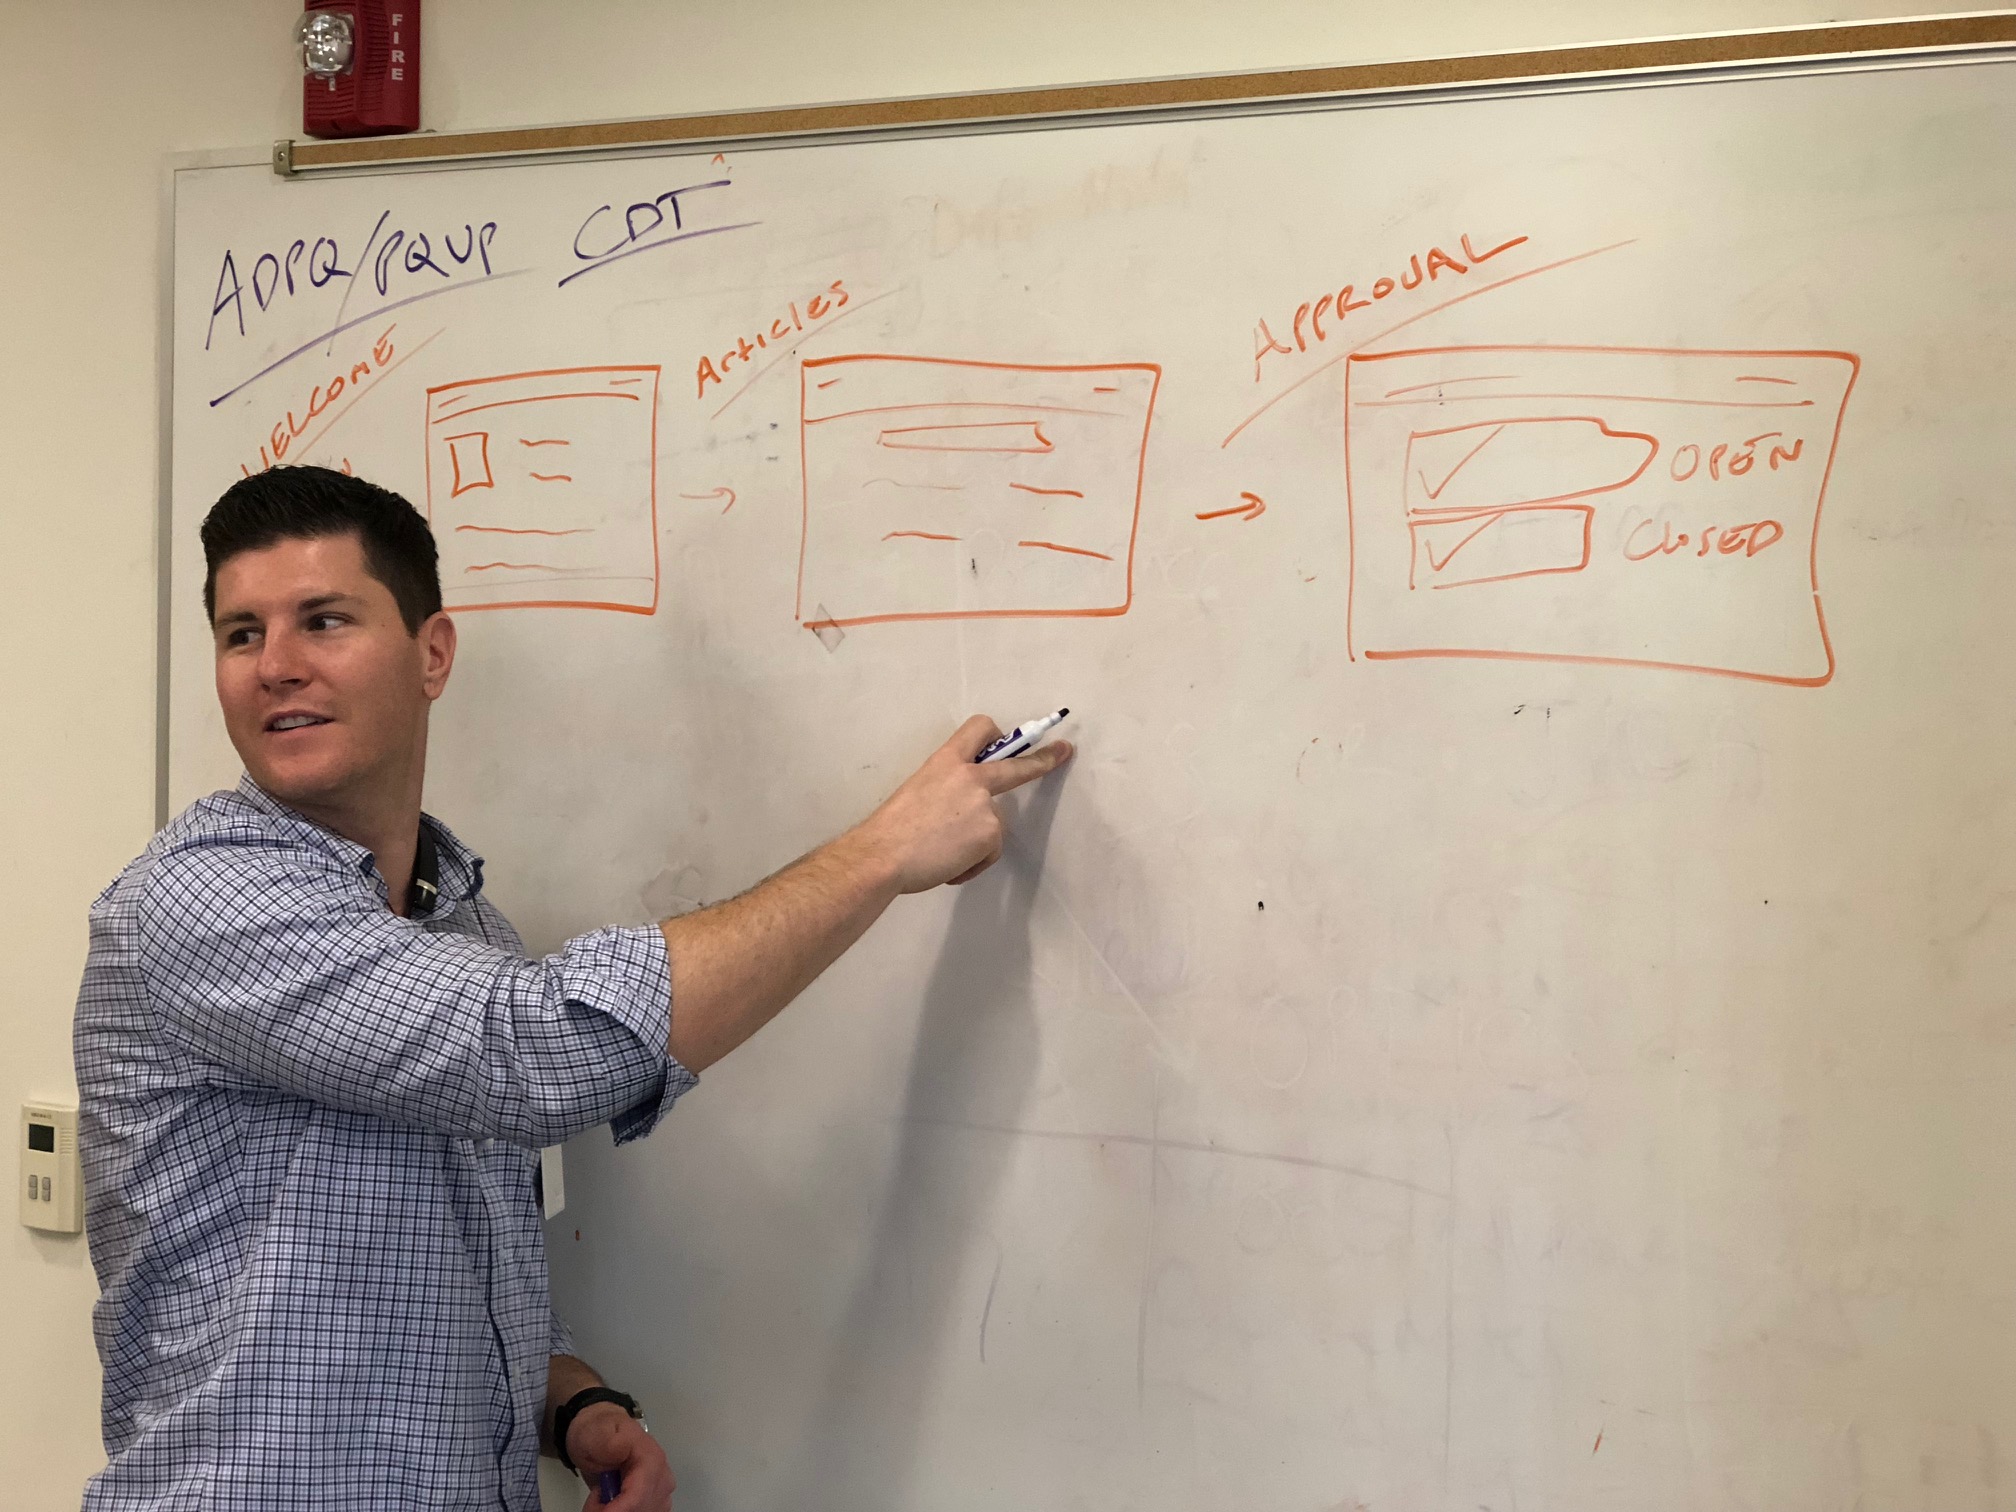 FIRE
ADPQ/PQVP CDT
WELCOME
Articles
APPROVAL
OPEN
CLOSED